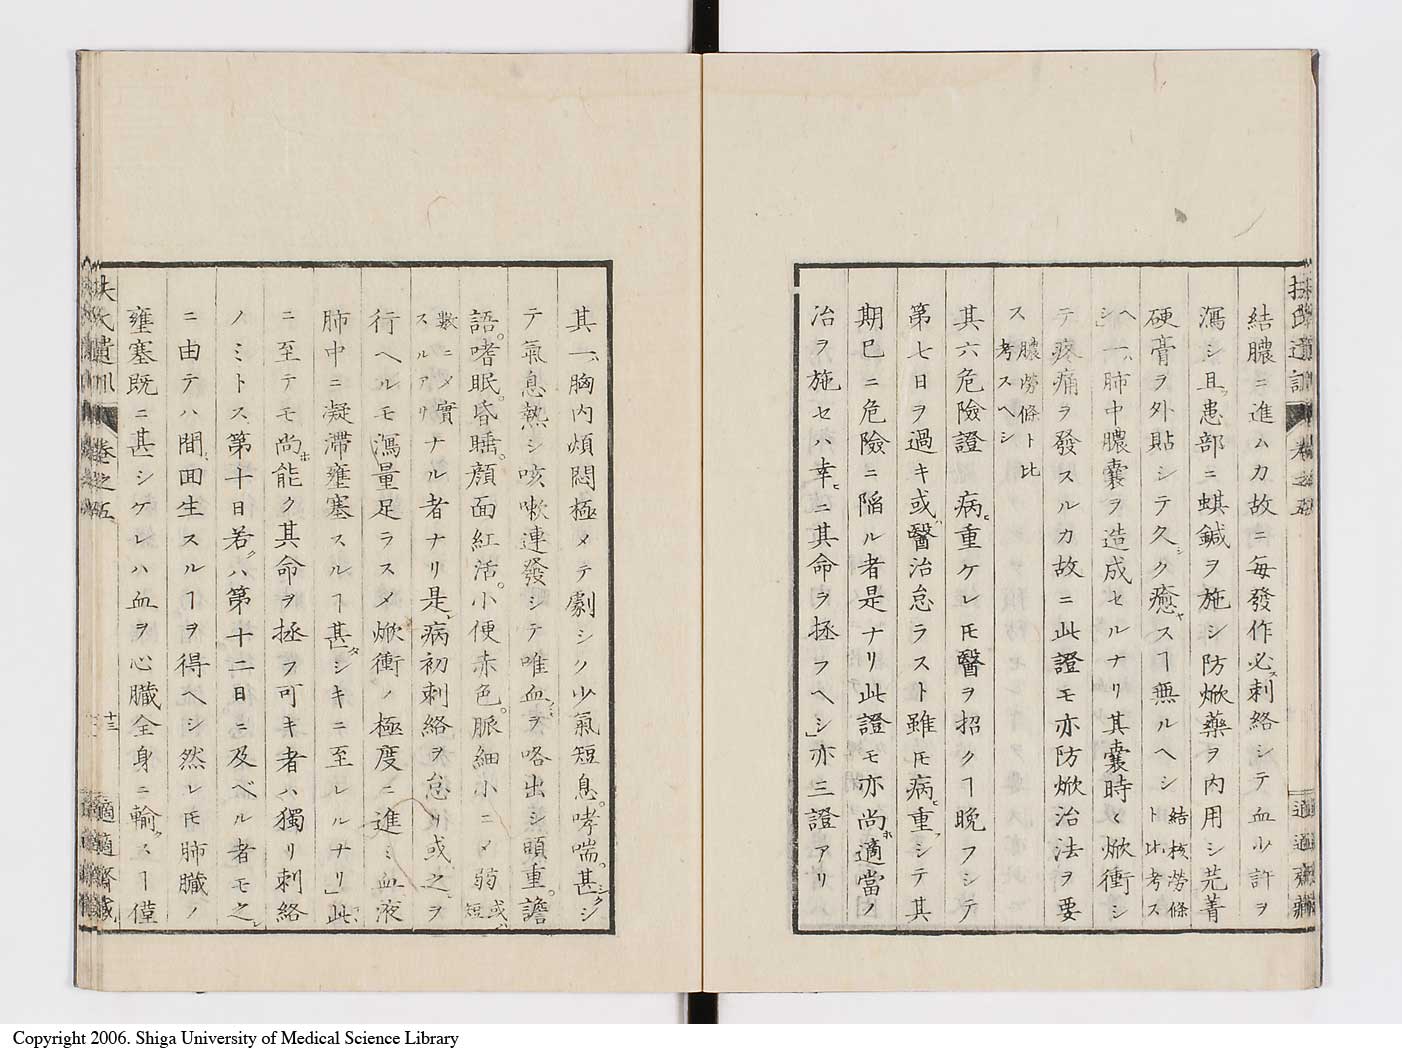 結膿ニ進ムカ故ニ毎發作必ス刺絡シテ血少許ヲ
瀉シ且ツ患部ニ蜞鍼ヲ施シ防焮藥ヲ内用シ芫菁
硬膏ヲ外貼シテ久シク癒ヤスヿ無ルヘシト結核勞條比考ス
ヘシ」一ハ肺中膿嚢ヲ造成セルナリ其嚢時々焮衝シ
テ疼痛ヲ發スルカ故ニ此證モ亦防焮治法ヲ要
ス膿勞條ト比考スヘシ
其六危險證 病ヒ重ケレ𪜈醫ヲ招クヿ晩フシテ
第七日ヲ過キ或ハ醫治怠ラスト雖𪜈病ヒ重フシテ其
期已ニ危險ニ陷ル者是ナリ此證モ亦尚ホ適當ノ
治ヲ施セハ幸ヒニ其命ヲ拯フヘシ」亦三證アリ
其一ハ胸内煩悶極メテ劇シク少氣短息。哮喘。甚シクシ
テ氣息熱シ咳嗽連發シテ唯血ヲ咯出シ頭重。譫
語。嗜眠。昏睡。顔面紅活。小便赤色。脈細小ニ乄弱或ハ短
數ニ乄實スルアリナル者ナリ是レ病初刺絡ヲ怠リ或ハ之ヲ
行ヘルモ瀉量足ラス乄焮衝ノ極度ニ進ミ血液
肺中ニ凝滯壅塞スルヿ甚タシキニ至レルナリ」此
ニ至テモ尚ホ能ク其命ヲ拯フ可キ者ハ獨リ刺絡
ノミトス第十日若クハ第十二日ニ及ベル者モ之レ
ニ由テハ間〻回生スルヿヲ得ヘシ然レ𪜈肺臟ノ
壅塞既ニ甚シケレハ血ヲ心臟全身ニ輸スヿ僅
扶氏遺訓 卷之五
十三
適適齋藏
Copyright 2006. Shiga University of Medical Science Library